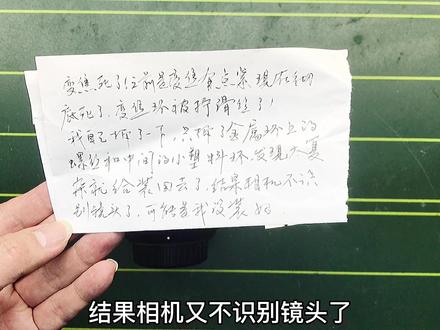 变焦死了以前是变焦有点紧现在彻
底死了,变焦环被拧滑丝了!
我自己拆了一下,只拆了金属环上的
螺丝和中间的小塑料环发现太复
杂就给装回去了,结果相机不识
别镜头了,可能是我没装好.
结果相机又不识别镜头了